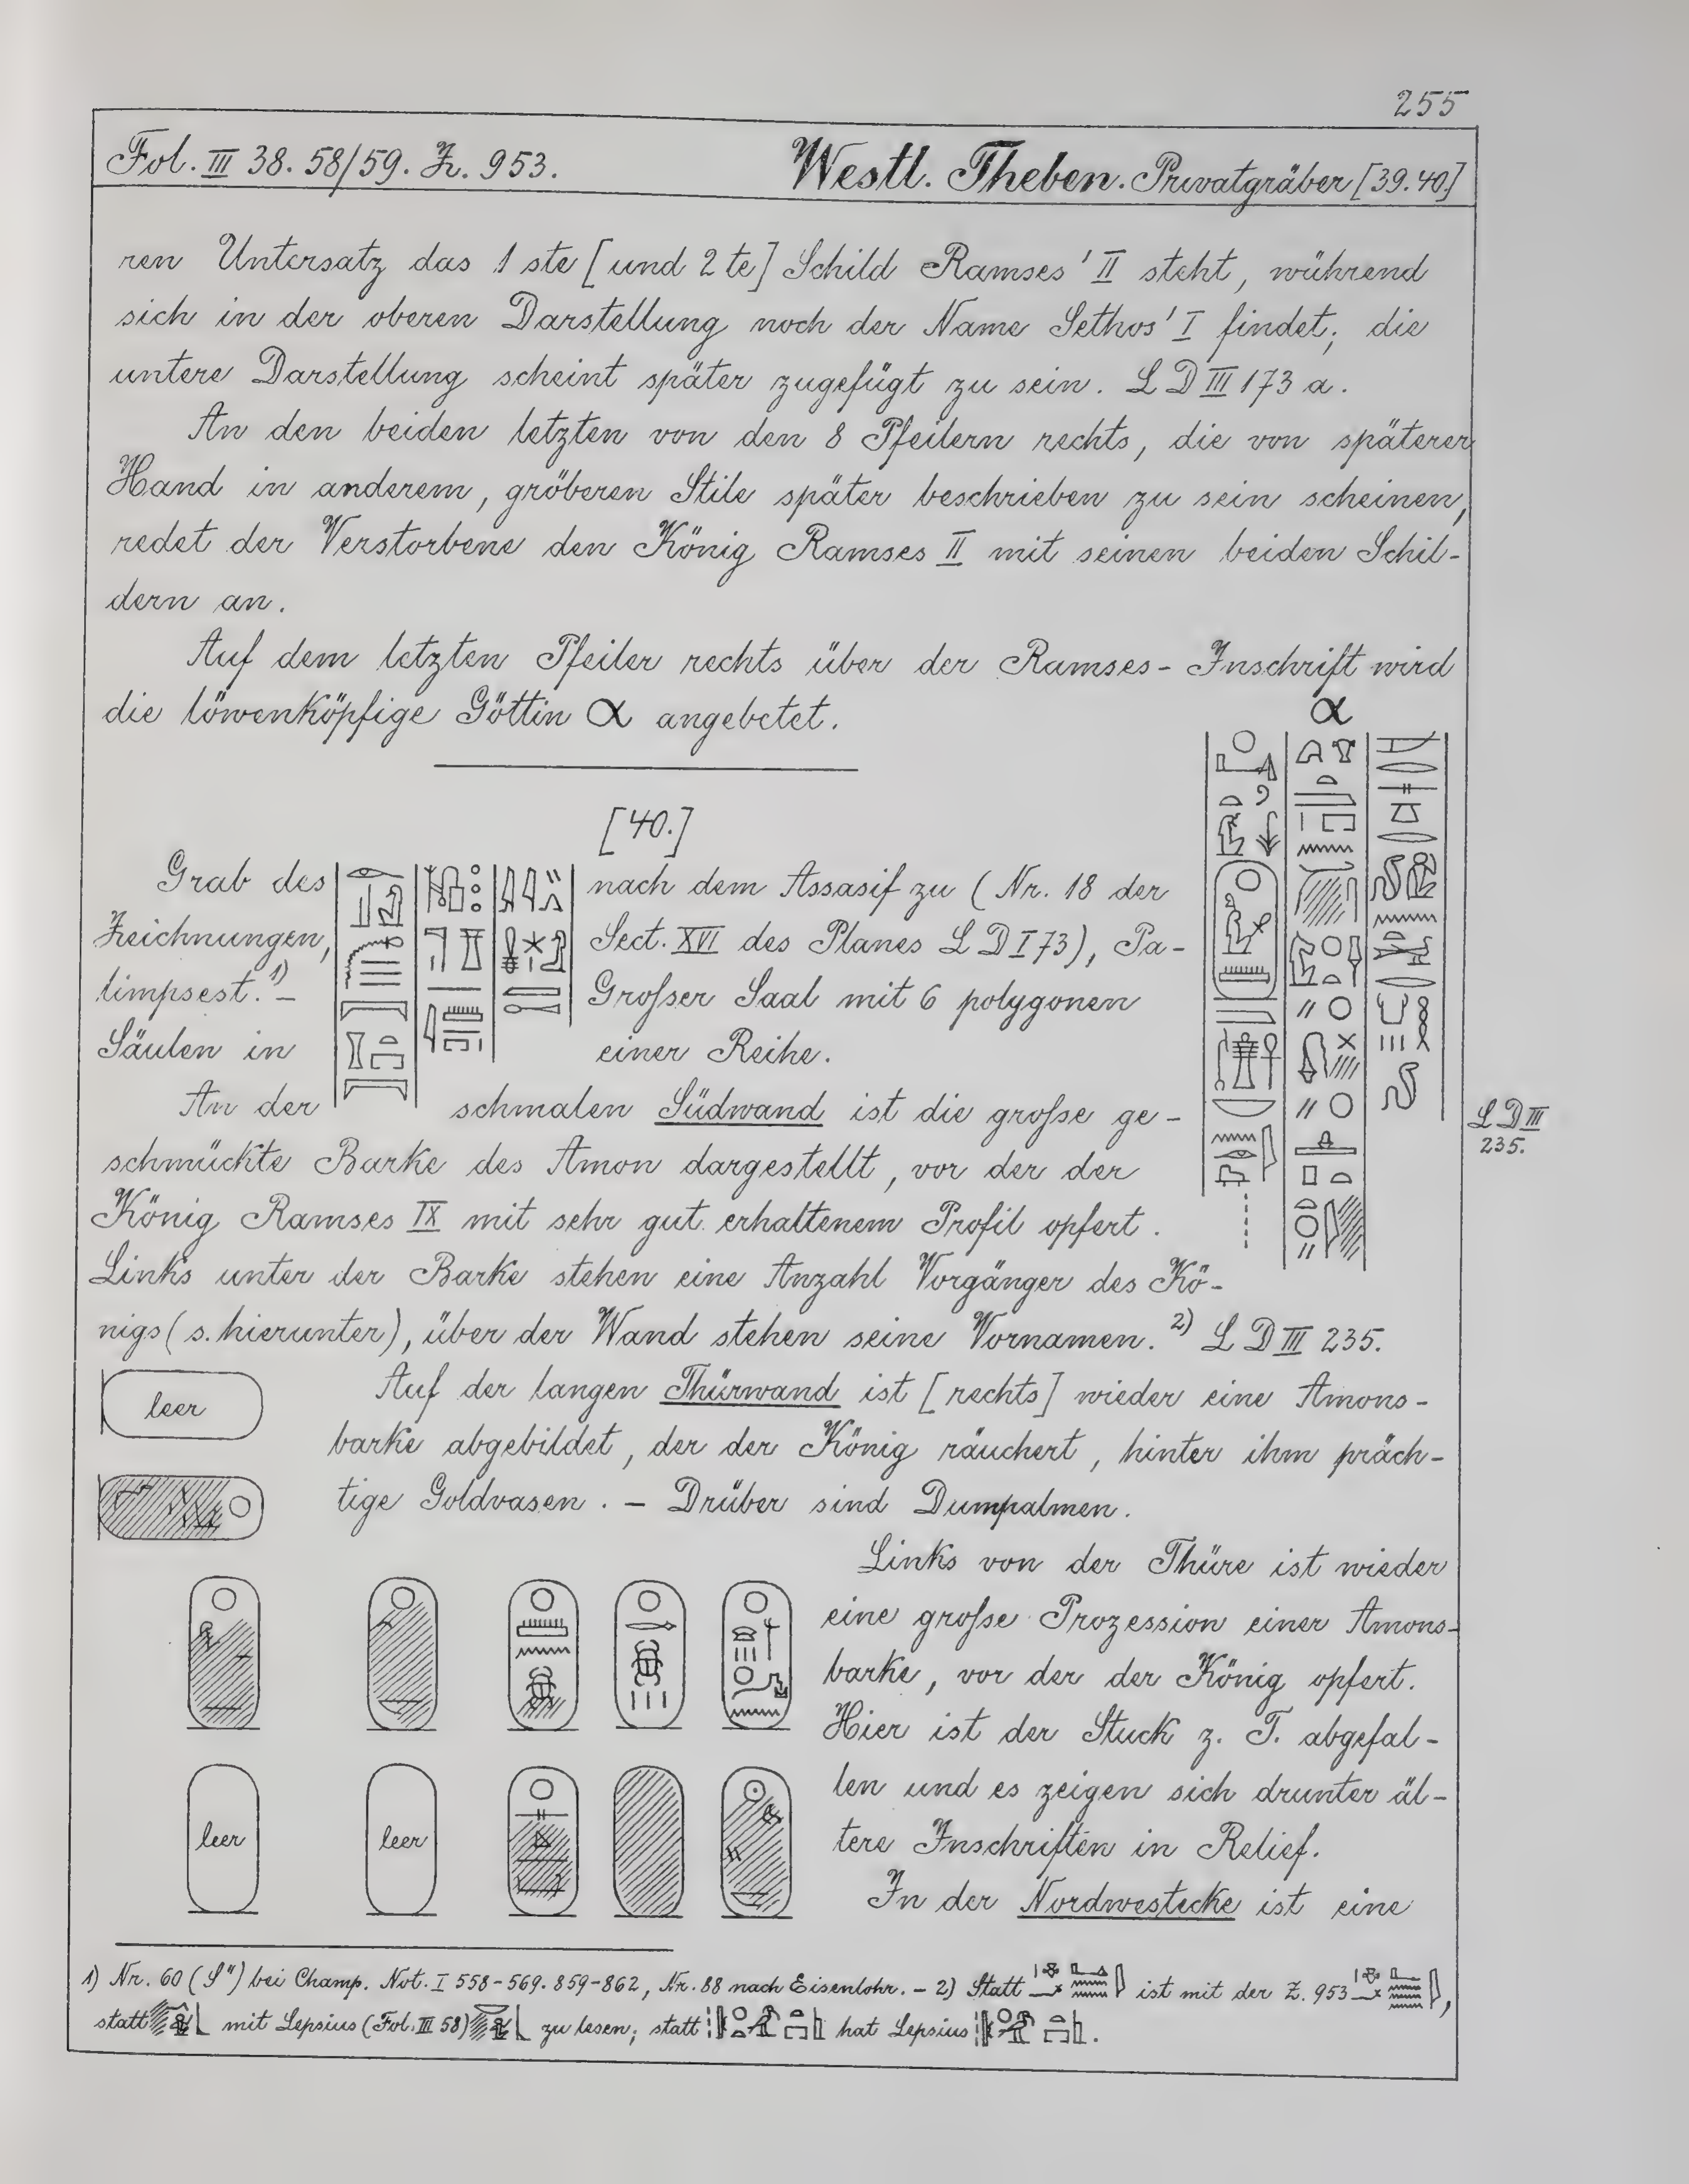 255
Fol. III 38. 58/59. Z. 953.
Westl. Theben. Privatgräber [39.40.]
ren Untersatz das 1 ste [und 2 te] Schild Ramses' II steht, während
sich in der oberen Darstellung noch der Name Sethos' I findet; die
untere Darstellung scheint später zugefügt zu sein. L D III 173 a.
An den beiden letzten von den 8 Pfeilern rechts, die von späterer
Hand in anderem, gröberen Stile später beschrieben zu sein scheinen,
redet der Verstorbene den König Ramses II mit seinen beiden Schil-
dern an.
Auf dem letzten Pfeiler rechts über der Ramses-Inschrift wird
die löwenköpfige Göttin α angebetet.
α
[40.]
Grab des nach dem Assasif zu (Nr. 18 der
Zeichnungen, Sect. XVI des Planes L D I 73), Pa-
limpsest.¹⁾ – Großer Saal mit 6 polygonen
Säulen in einer Reihe.
An der schmalen Südwand ist die große ge-
schmückte Barke des Amon dargestellt, vor der der
König Ramses IX mit sehr gut erhaltenem Profil opfert.
Links unter der Barke stehen eine Anzahl Vorgänger des Kö-
nigs (s. hierunter), über der Wand stehen seine Vornamen.²⁾ L D III 235.
L D III
235.
Auf der langen Thürwand ist [rechts] wieder eine Amons-
barke abgebildet, der der König räuchert, hinter ihm präch-
tige Goldvasen. – Drüber sind Dumpalmen.
leer
Links von der Thüre ist wieder
eine große Prozession einer Amons-
barke, vor der der König opfert.
Hier ist der Stuck z. T. abgefal-
len und es zeigen sich drunter äl-
tere Inschriften in Relief.
In der Nordwestecke ist eine
leer
leer
1) Nr. 60 (S") bei Champ. Not. I 558-569. 859-862, Nr. 88 nach Eisenlohr. – 2) Statt ist mit der Z. 953 ,
statt mit Lepsius (Fol. III 58) zu lesen; statt hat Lepsius .